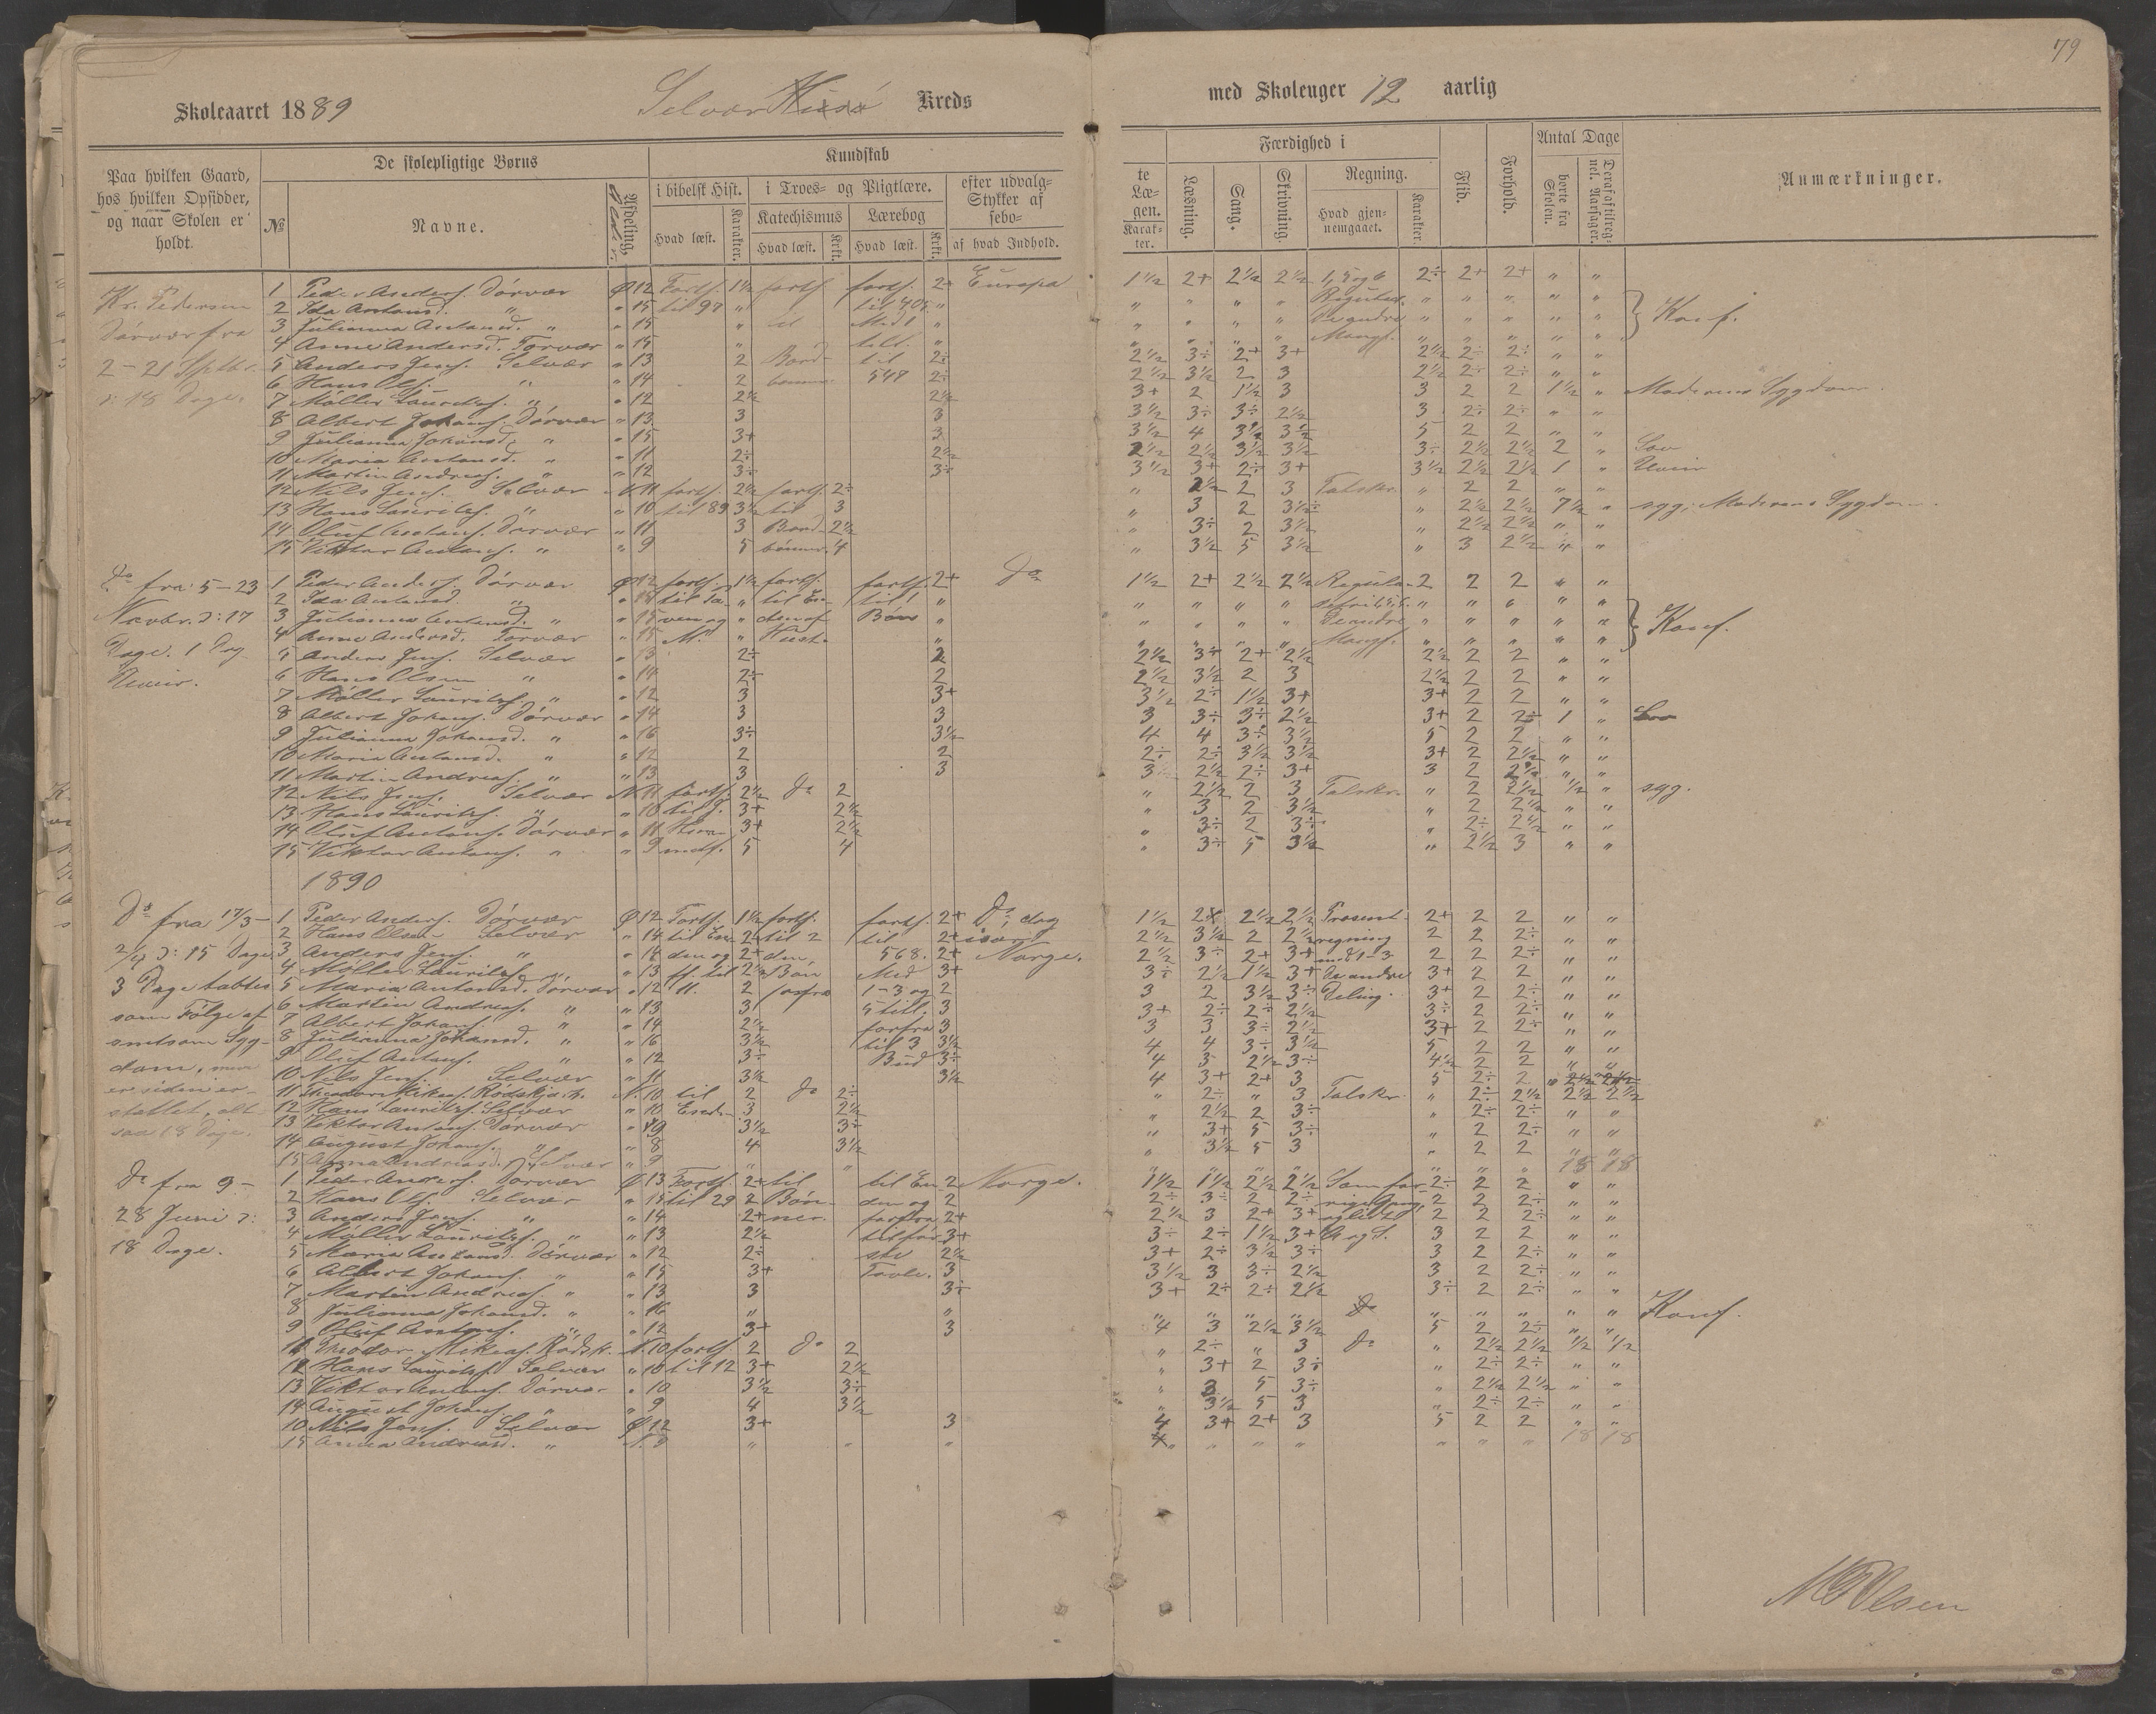 79
Skoleaaret 1889 Selvær Husö Kreds med Skoleuger 12 aarlig
Paa hvilken Gaard, hos hvilken Opsidder, og naar Skolen er holdt.
De skolepligtige Børns
No
Navne.
Afdeling.
Alder.
Kundskab
i bibelsk Hist.
Hvad læst.
Karakter.
i Troes- og Pligtlære.
Katechismus
Hvad læst.
Krkt.
Lærebog
Hvad læst.
Krkt.
efter udvalgte Stykker af Læsebogen.
af hvad Indhold.
Karakter.
Færdighed i
Læsning.
Sang.
Skrivning.
Regning.
Hvad gjennemgaaet.
Karakter.
Flid.
Forhold.
Antal Dage
borte fra Skolen.
Deraf af tilregnel. Aarsager.
Anmærkninger.
Kr. Pedersen
Dørvær fra
2-21 Septbr.
ɔ: 18 Dage.
1 Peder Anders. Dörvær Ø 12 Forts. 1½ forts. forts. 2+ Europa 1½ 2+ 2½ 2½ 2÷ 2+ 2+ " "
2 Ida Antonsd. " " 15 til 97 " til 405 " " " " " " " " " "
3 Julianna Antonsd. " " 15 " til " " " " " " " " " " Konf.
4 Anne Andersd. Torvær " 15 " " " " " " " " " " "
5 Anders Jens. Selvær " 13 2 Bord- til 2÷ 2½ 3÷ 2+ 3+ 2½ 2÷ 2÷ " "
6 Hans Ols. " " 14 2 bønner 548 2÷ 2½ 3½ 2 3 2½ 2÷ 2÷ " "
7 Møller Lauritss. " " 12 2½ 2½ 3+ 2 1½ 3 3 2 2 1½ " Moderens Sygdom.
8 Albert Johans. Dörvær " 13 3 3 3½ 3÷ 3÷ 2½ 3 2÷ 2÷ " "
9 Julianna Johansd. " " 15 3+ 3 3½ 4 3½ 3½ 5 2 2 " "
10 Maria Antonsd. " " 11 2÷ 2½ 2½ 2½ 3½ 3½ 3÷ 2½ 2½ 2 " Lov
11 Martin Andreas. " " 12 3÷ 3÷ 3½ 3+ 2÷ 3+ 3½ 2½ 2½ 1 " Uveir
12 Nils Jens. Selvær N 11 forts. 2½ forts. 2÷ " 2½ 2 3 Talskr. " 2 2 " "
13 Hans Lauritss. " " 10 til 89 3½ til 3 " 3 2 3½÷ " 2½ 2½ 7½ " syg; Moderens Sygdom.
14 Oluf Antons. Dørvær " 11 3 Bord- 2½ " 3÷ 2 3½ " 2½ 2½ " "
15 Viktor Antons. " " 9 5 bønner. 4 " 3½ 5 3½ " 3 2½ " "
Do fra: 5-23
Novbr. ɔ: 17
Dage. 1 Dag
Uveir.
1 Peder Anders. Dørvær Ø 12 forts. 1½ forts. forts. 2+ Do 1½ 2+ 2½ 2½ 2 2 2 " "
2 Ida Antonsd. " " 15 " til En- til 1 " " " " " " " " " "
3 Julianna Antonsd. " " 15 " den af Bøn " " " " " De andre " " " " " Konf.
4 Anne Andersd. Torvær " 15 " " " " " " " " " " "
5 Anders Jens. Selvær " 13 2÷ 2 2½ 3÷ 2+ 2½ 2½ 2 2 " "
6 Hans Olsen " " 14 2÷ 2 2½ 3½ 2 3 2½ 2 2 " "
7 Møller Lauritss. " " 12 3 3+ 3½ 2÷ 1½ 3+ 3+ 2 2 " "
8 Albert Johans. Dörvær " 14 3 3 3 3÷ 3÷ 2½ 3+ 2 2÷ 1 "
9 Julianna Johansd. " " 16 3÷ 3½ 4 4 3÷ 3½ 5 2 2 " "
10 Maria Antonsd. " " 12 2 2 2÷ 2÷ 3½ 3½ 3+ 2 2½ " "
11 Martin Andreas. " " 13 3 3 3½ 2½ 2÷ 3+ 3 2 2½ " "
12 Nils Jens. Selvær N 11 forts. 2½ Do 2 " 2½ 2 3 Talskr. " 2 2½ ½ " syg.
13 Hans Lauritss. " " 10 3+ 2½ " 3 2 3½ " 2 2½ " "
14 Oluf Antons. Dørvær " 11 3+ 2½ " 3÷ 2 3÷ " 2÷ 2½ " "
15 Viktor Antons. " " 9 5 4 " 3÷ 5 3½ " 2½ 3 " "
1890
Do fra 17/3-
2/4 ɔ: 15 Dage
3 Dage tabtes
som Følge af
smitsom Syg-
dom, men
er siden er-
stattet, alt-
saa 18 Dage.
1 Peder Anders. Dörvær Ø 12 Forts. 1½ forts. forts. 2+ Do, dog 1½ 2+ 2½ 2½ Prosent- 2+ 2 2 " "
2 Hans Olsen Selvær " 14 til En- 2÷ til 2 til 2+ især 2½ 3½ 2 2½ regning 2 2 2÷ " "
3 Anders Jens. " " 14 den og 2+ den, 568. 2+ Norge. 2½ 3÷ 2+ 3+ 2 2 2÷ " "
4 Møller Lauritss. " " 13 2½ Bøn Med 3+ 3÷ 2½ 1½ 3+ De andre 3+ 2 2 " "
5 Maria Antonsd. Dørvær " 12 2 forfra 1-3 og 2 3 2 3½ 3÷ Deling. 3+ 2 2÷ " "
6 Martin Andreas. " " 13 3 3 3+ 2÷ 2÷ 2½ 3÷ 2 2÷ " "
7 Albert Johans. " " 14 2½ forfra 3 3 3 3÷ 2½ 3+ 2 2÷ " "
8 Julianna Johansd. " " 16 3½ til 3 3½ 4 4 3÷ 3½ 5 2 2 " "
9 Oluf Antons. " " 12 3÷ Bud 3÷ 4 3 2½ 3÷ 4½ 2 2 " "
10 Nils Jens. Selvær " 11 3½ 3½ 4 3+ 2+ 3 5 2÷ 2 " "
11 Theodor Mikas. Rödskj. N. 10 til 2 Do 2÷ " 2÷ " 3 Talskr. " 2÷ 2½ 2½ 2½
12 Hans Lauritss. Selvær " 10 3 2½ " 2½ 2 3÷ " 2÷ 2÷ " "
13 Viktor Antons. Dørvær " 9 3½ 3÷ " 3+ 5 3÷ " 2 2÷ " "
14 August Johans. " " 8 4 3½ " 3½ 5 3 " 2 2 " "
15 Anna Andreasd. Selvær " 9 " " " " " " " " " 18 18
Do fra 9-
28 Juni ɔ:
18 Dage.
1 Peder Anders. Dørvær Ø 13 Forts. 2+ til til En 2 Norge. 1½ 1½ 2½ 2½ Som for- 2÷ 2 2 " "
2 Hans Ols. Selvær " 15 til 29 2 Bøn- den og 2 2÷ 3÷ 2 2÷ rige Gang 2 2 2÷ " "
3 Anders Jens. " " 14 2+ ner. forfra 2+ 2½ 3 2+ 3+ 2 2 2÷ " "
4 Møller Lauritss. " " 13 2½ 3+ 3÷ 2÷ 1½ 3+ 3 2 2 " "
5 Maria Antonsd. Dørvær " 12 2÷ ste 2½ 3+ 2÷ 3½ 3÷ 3 2 2÷ " "
6 Albert Johans. " " 15 3+ Tavle. 3 3½ 3 3÷ 2½ 3 2 2÷ " "
7 Martin Andreas. " " 13 3 3÷ 3+ 2÷ 2÷ 2½ 3÷ 2 2÷ " "
8 Julianna Johansd. " " 16 " " " " " " " " " " " Konf.
9 Oluf Antons. " " 12 3+ 3 4 3 2½ 3½ 5 2 2÷ " "
11 Theodor Mikas. Rödsk. N. 10 forts. 2 Do 2 " 2÷ " 3 Do " 2½ 2½ ½ ½
12 Hans Lauritss. Selvær " 10 til 12 3+ 2½ " 3+ 2 3÷ " 2÷ 2÷ " "
13 Viktor Antons. Dørvær " 10 3½ 3÷ " 3 5 3÷ " 2½ 2½ " "
14 August Johans. " " 9 4 3½ " 3½ 5 3 " 2÷ 2÷ " "
10 Nils Jens. Selvær Ø 12 3+ 3 4 3+ 2+ 3 5 2 2 " "
15 Anna Andreasd. " " " " " " " " " " " 18 18
Olsen